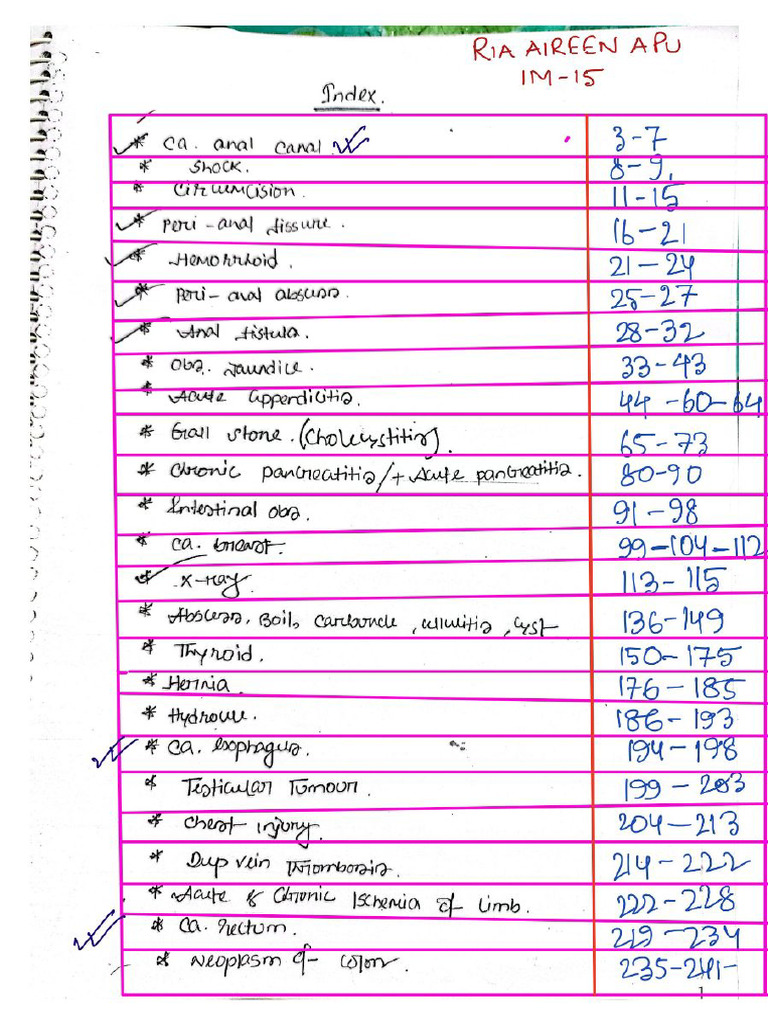 RIA AIREEN APU
IM-15
Index.
* Ca. anal canal. 3-7
* Shock. 8-9.
* Circumcision. 11-15
* Peri-anal fissure. 16-21
* Hemorrhoid. 21-24
* Peri-anal abscess. 25-27
* Anal fistula. 28-32
* Obs. Jaundice. 33-43
* Acute appendicitis. 44-60-64
* Gall stone. (Cholecystitis). 65-73
* Chronic pancreatitis/+ Acute pancreatitis. 80-90
* Intestinal obs. 91-98
* Ca. breast. 99-104-112
* X-ray 113-115
* Abscess, Boil, carbuncle, cellulitis, cyst 136-149
* Thyroid. 150-175
* Hernia. 176-185
* Hydrocele. 186-193
* Ca. esophagus. 194-198
* Testicular Tumour. 199-203
* Chest injury. 204-213
* Deep vein Thrombosis. 214-222
* Acute & Chronic Ischemia of Limb. 222-228
* Ca. rectum. 229-234
* Neoplasm of colon. 235-241-
1